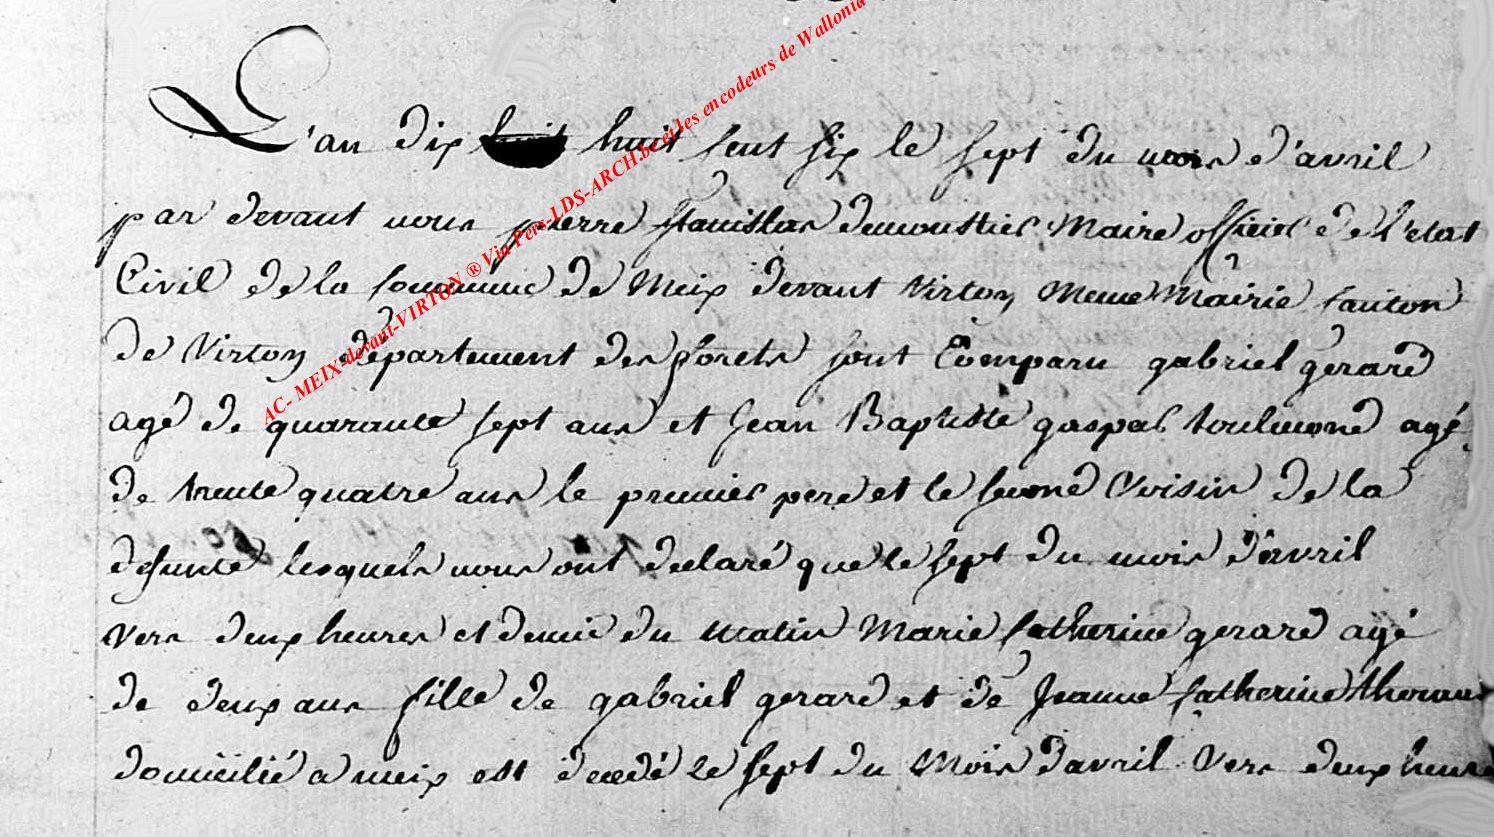 L'an dix huit cent six le sept du mois d'avril
par devant nous pierre stanislas demoustier Maire officier de l'etat
Civil de la commune de Meix devant Virton Meme Mairie canton
de Virton departement des forets sont Comparu gabriel gerard
agé de quarante sept ans et jean Baptiste gaspar toulmond agé
de trente quatre ans le premier pere et le second Voisin de la
defunte lesquels nous ont declaré que le sept du mois d'avril
vers deux heures et demie du matin Marie catherine gerard agé
de deux ans fille de gabriel gerard et de Jeanne catherine
domicilié a meix est decedé le sept du Mois d'avril Vers deux heures
AC- MEIX-devant-VIRTON ® Via Per-LDS-ARCH.be et les encodeurs de Wallonia